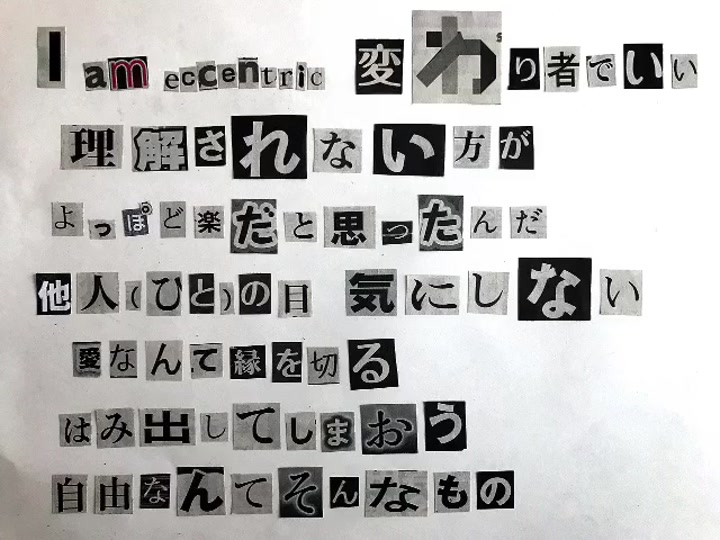 I am eccentric 変わり者でいい
理解されない方が
よっぽど楽だと思ったんだ
他人(ひと)の目 気にしない
愛なんて縁を切る
はみ出してしまおう
自由なんてそんなもの